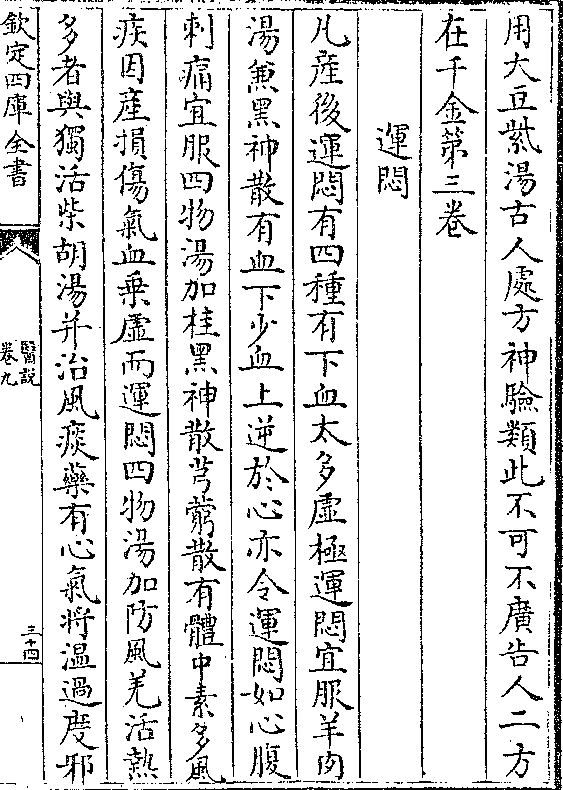 用大豆紫湯古人處方神驗類此不可不廣告人二方
在千金第三卷
運悶
凡産後運悶有四種有下血太多虛極運悶宜服羊肉
湯兼黑神散有血下少血上逆於心亦令運悶如心腹
刺痛宜服四物湯加桂黑神散芎藭散有體中素多風
疾因産損傷氣血乗虛而運悶四物湯加防風羌活熱
多者與獨活柴胡湯并治風痰藥有心氣將溫過度邪
欽定四庫全書
醫説
卷九
三十四